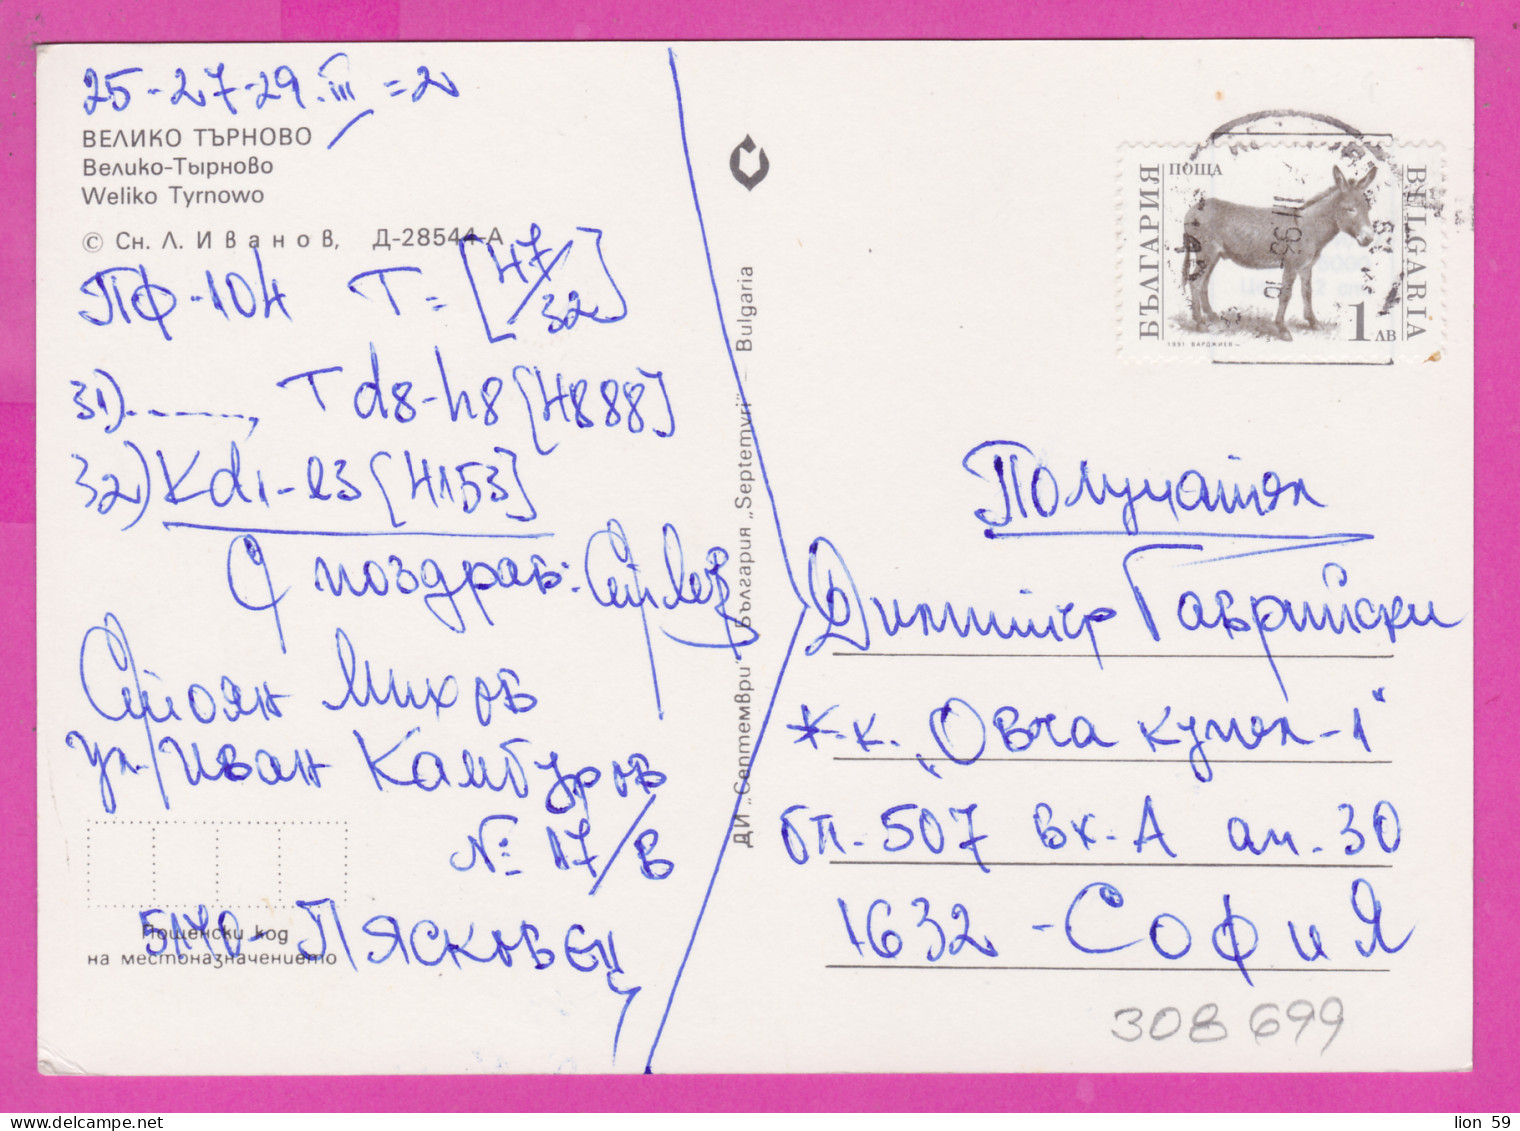 25-27-29.III=2
ВЕЛИКО ТЪРНОВО
Велико-Тырново
Weliko Tyrnowo
© Сн. Л. Иванов, Д-28544-А
ПФ-104 T=[47/32]
31)......, Td8-h8[H888]
32)Kd1-e3[H153]
С поздрав:
Стоян Михов
ул. Иван Камбуров
№ 17/В
5170-Лясковец
Пощенски код
на местоназначението
ДИ „Септември" България „Septemvri" Bulgaria
БЪЛГАРИЯ
ПОЩА
BULGARIA
1 ЛВ
1991 ВАРДЖИЕВ
Получател
Димитър Гаврийски
ж.к. „Овча купел-1"
бл.507 вх.А ап.30
1632-София
308699
lion 59